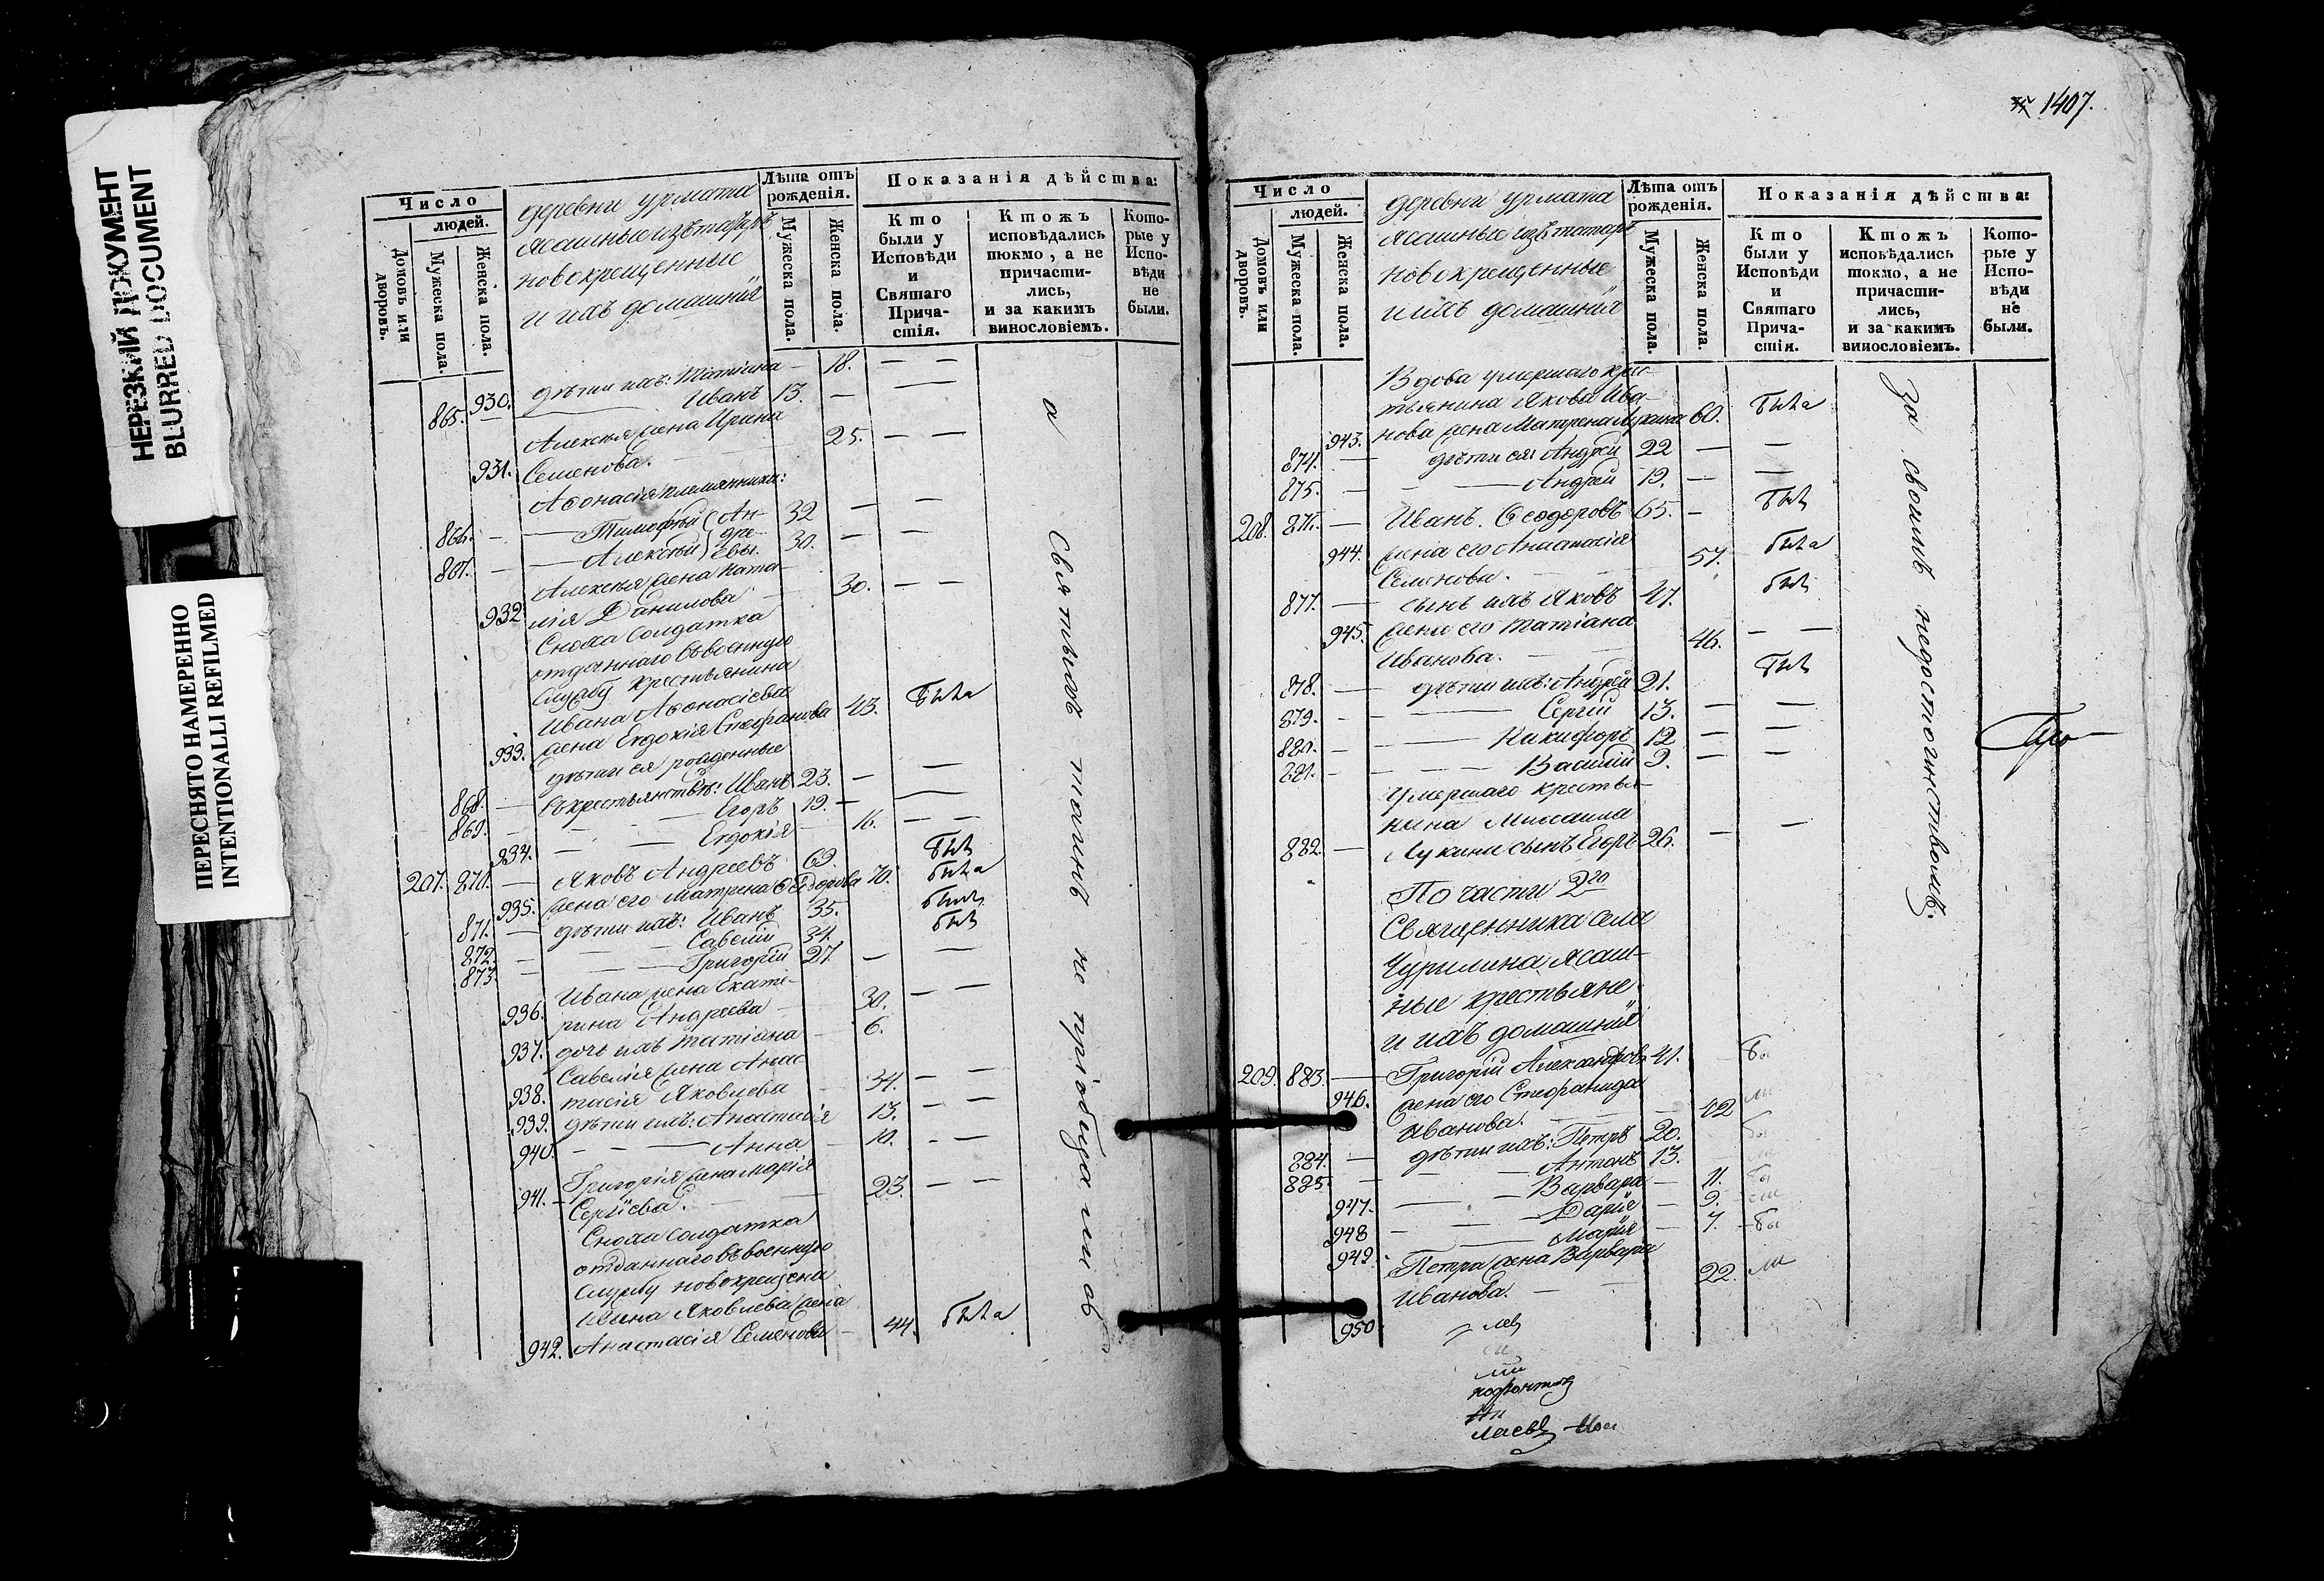 НЕРЕЗКИЙ ДОКУМЕНТ
BLURRED DOCUMENT
ПЕРЕСНЯТО НАМЕРЕННО
INTENTIONALLI REFILMED
Число
людей.
Домовъ или дворовъ.
Мужеска пола.
Женска пола.
деревни урмата
ясашные изъ татаръ
новокрещенные
и ихъ домашнія
Лѣта отъ рожденія.
Мужеска пола.
Женска пола.
Показанія дѣйства:
Кто были у Исповѣди и Святаго Причастія.
Ктожъ исповѣдались токмо, а не причастились, и за какимъ винословіемъ.
Которые у Исповѣди не были.
930. дѣти ихъ: Татіана — 18. — —
865. — Иванъ 13. — —
Алексѣя жена Ирина
931. Семенова. 25. — —
Афонасія племянники:
866. — Тимофей Ан- 32 — —
867. — Алексѣй дреевы. 30. — —
Алексѣя жена Ната-
932 лія Данилова 30. — —
Сноха солдатка
отданнаго въ военную
службу крестьянина
Ивана Афонасіева
933. жена Евдокія Стефанова 43. была
дѣти ея рожденные
868. — въ крестьянствѣ: Иванъ 23. — —
869. — Егоръ 19. — —
934. — Евдокія — 16. — —
207. 870. — Яковъ Андреевъ 69. былъ
935. жена его Матрена Ѳедорова 70. была
871. — дѣти ихъ: Иванъ 35. былъ
872. — Савелій 34. былъ
873. — Григорій 27 — —
Ивана жена Екате-
936. рина Андреева 30. — —
937. дочь ихъ Татіана — 6.
Савелія жена Анас-
938. тасія Яковлева 34. — —
939. дѣти ихъ: Анастасія 13. — —
940. — Анна — 10. — —
Григорія жена Марія
941. — Сергіева. 23. — —
Сноха солдатка
отданнаго въ военную
службу новокрещена
Ивана Яковлева жена
942. Анастасія Семенова — 44. была
а Святыхъ таинъ не пріобщались
1407.
Число
людей.
Домовъ или дворовъ.
Мужеска пола.
Женска пола.
деревни урмата
ясашные изъ татаръ
новокрещенные
и ихъ домашнія
Лѣта отъ рожденія.
Мужеска пола.
Женска пола.
Показанія дѣйства:
Кто были у Исповѣди и Святаго Причастія.
Ктожъ исповѣдались токмо, а не причастились, и за какимъ винословіемъ.
Которые у Исповѣди не были.
Вдова умершаго крес-
тьянина Якова Ива-
943. нова жена Матрена Лукина 60. была
874. — дѣти ея: Андрей 22 — —
875. — Андрей 19. — —
208. 876. — Иванъ Ѳеодоровъ 65. — былъ
944. жена его Анастасія
Семенова. 57. была
877. — сынъ ихъ Яковъ 47. былъ
945. жена его Татіана
Иванова. 46. — —
878. — дѣти ихъ: Андрей 21. былъ
879. — Сергій 13. — —
880. — Никифоръ 12 — —
881. — Василій 9. — —
умершаго крестья-
нина Михаила
882. — Лукина сынъ Егоръ 26. — —
По части 2го
Священника села
Чурилина ясаш-
ные крестьяне
и ихъ домашнія
209. 883. — Григорій Александровъ 41. — бы
946. жена его Стефанида
Иванова. 42 ли
884. — дѣти ихъ: Петръ 20. бы
885. — Антонъ 13.
947. — Варвара — 11. бы
948 — Дарія — 9. ли
949. — Марія — 7. бы
Петра жена Варвара
950 Иванова. — 22. ли
за своимъ недостоинствомъ.